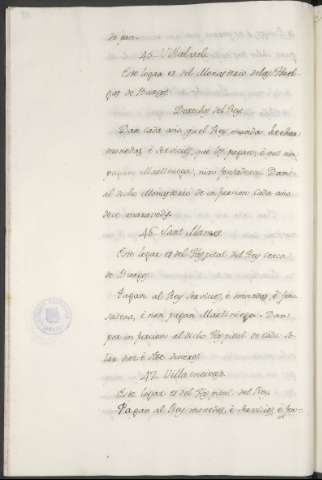 de pan.
45. Villalval
Este logar es del Monesterio de las Huel-
gas de Burgos.
Derechos del Rey.
Dan cada año, que el Rey manda hechar
monedas, é servicios, que los pagan, é que non
pagan Martiniega, nin fonsadera. Dan
al dicho Monesterio de infurcion cada año
doce maravedis.
46. Sant Mames
Este logar es del Hospital del Rey cerca
de Burgos
Pagan al Rey servicios, é monedas, é fon
sadera, é non pagan Martiniega. Dan
por infurcion al dicho Hospital de cada so-
lar dos é dineros
47. Villa
Este logar es del Hospital del Rey.
Pagan al Rey monedas, é servicios, é fon-